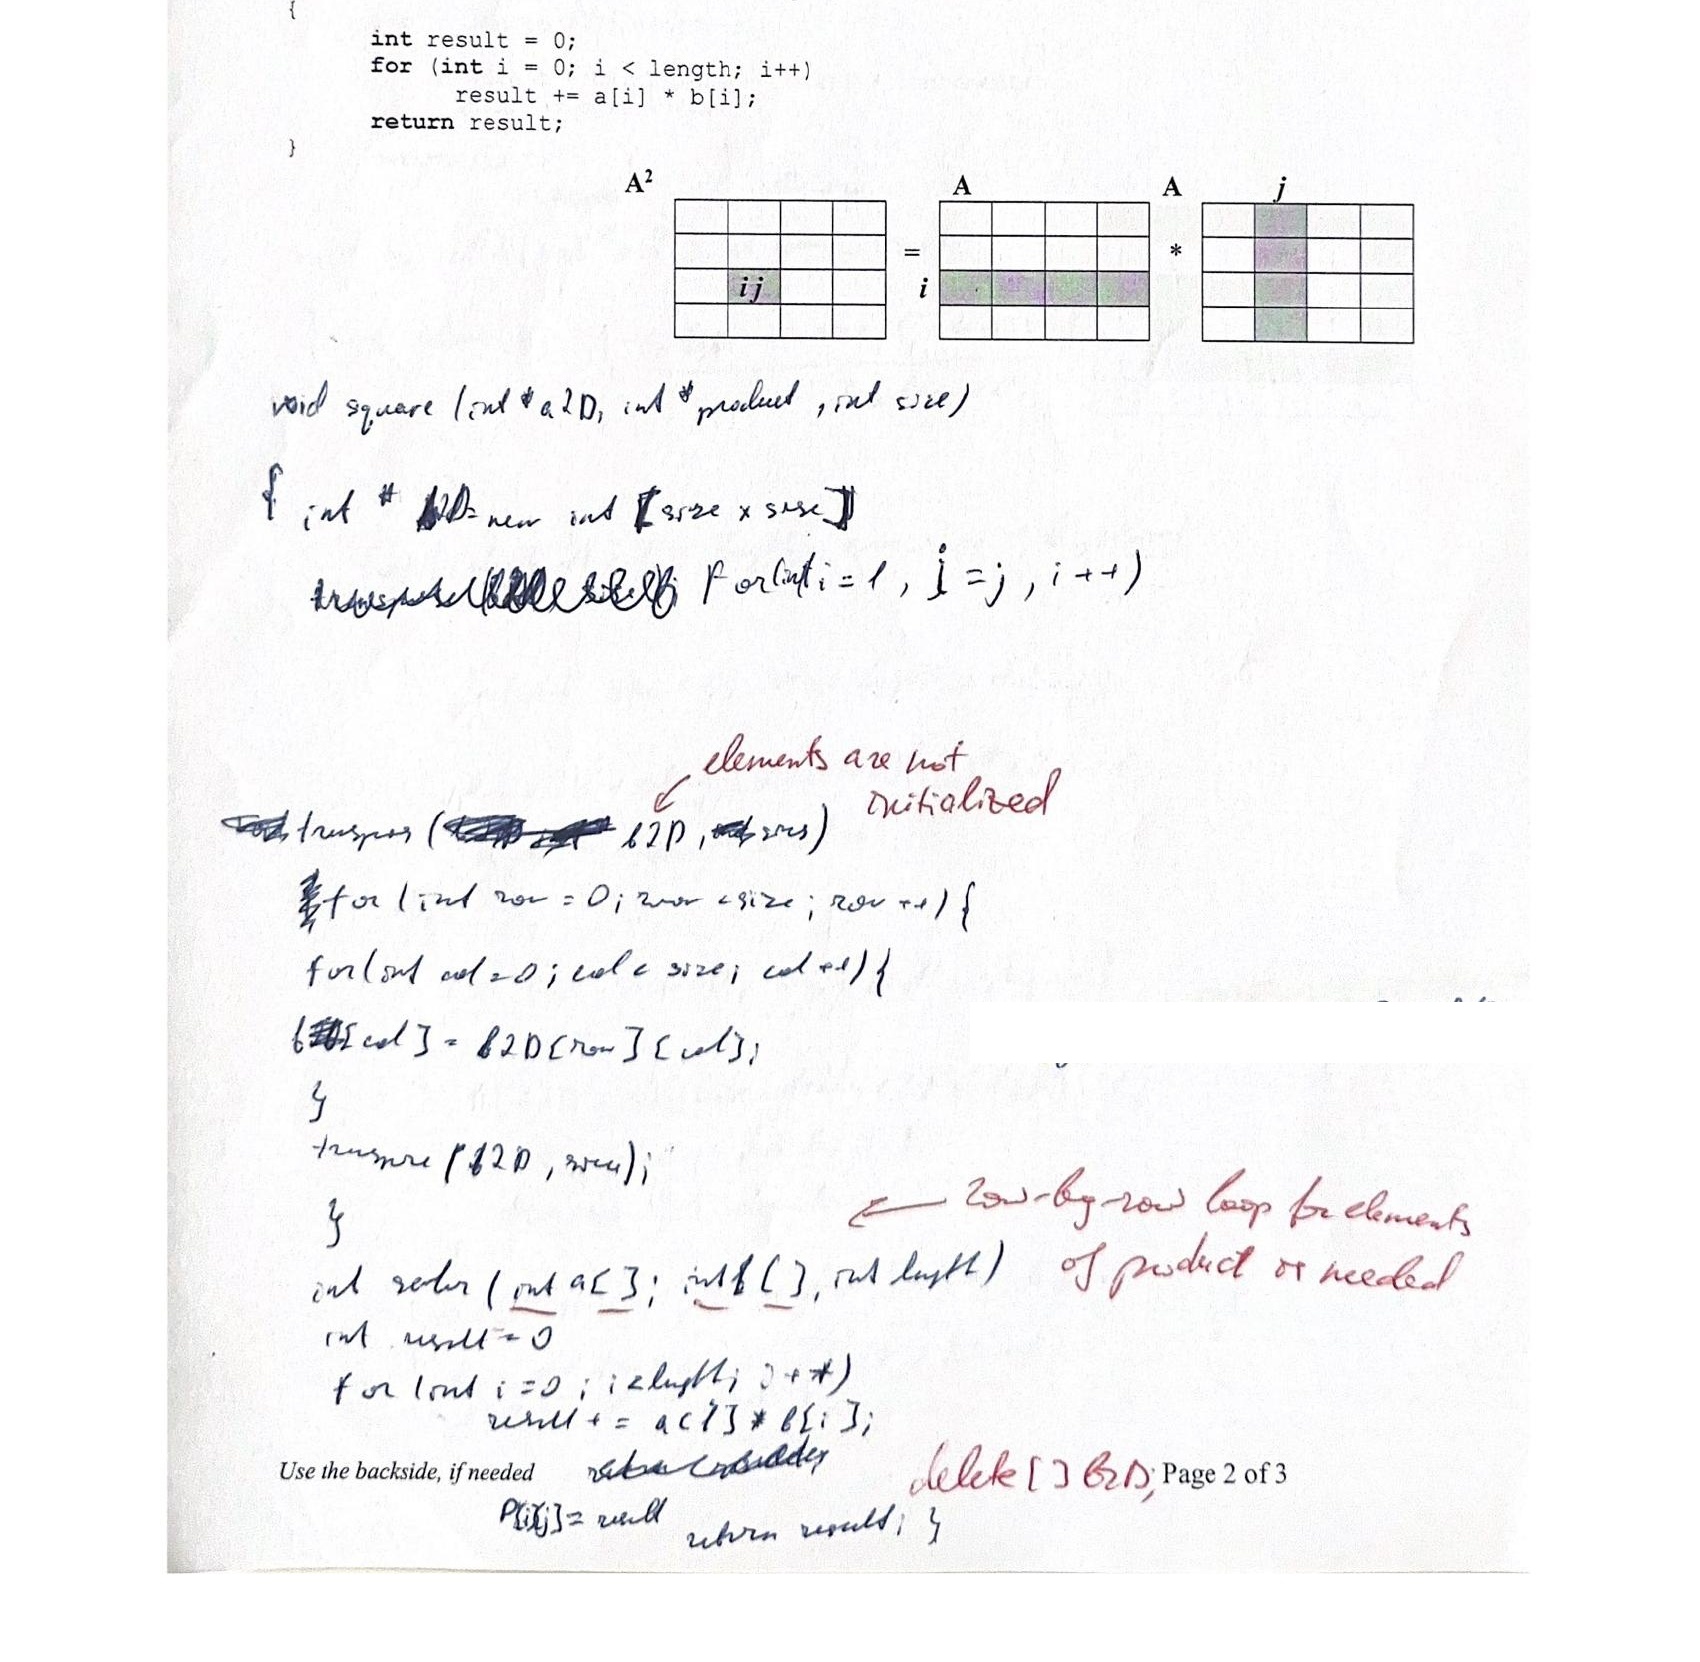 {
int result = 0;
for (int i = 0; i < length; i++)
result += a[i] * b[i];
return result;
}
A² A A j
= *
ij i
void square (int * a2D, int * product, int size)
{ int * b2D = new int [size x size]
for (int i = 1, j = j, i++)
elements are not
initialized
transpos ( b2D, size)
for (int row = 0; row < size; row ++) {
for (int col = 0; col < size; col ++) {
b [col] = b2D[row][col];
}
transpose (b2D, size);
}
row-by-row loop for elements
of product is needed
int scalar (int a[ ]; int b[ ], int length)
int result = 0
for (int i = 0; i < length; i++)
result + = a[i] * b[i];
Use the backside, if needed
delete [ ] B2D; Page 2 of 3
P[i][j] = result
return result; }